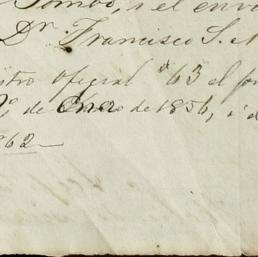 Tombo, i el envi
Dr. Francisco S.
istro oficial n° 63 el
1° de Enero de 1856, i
862